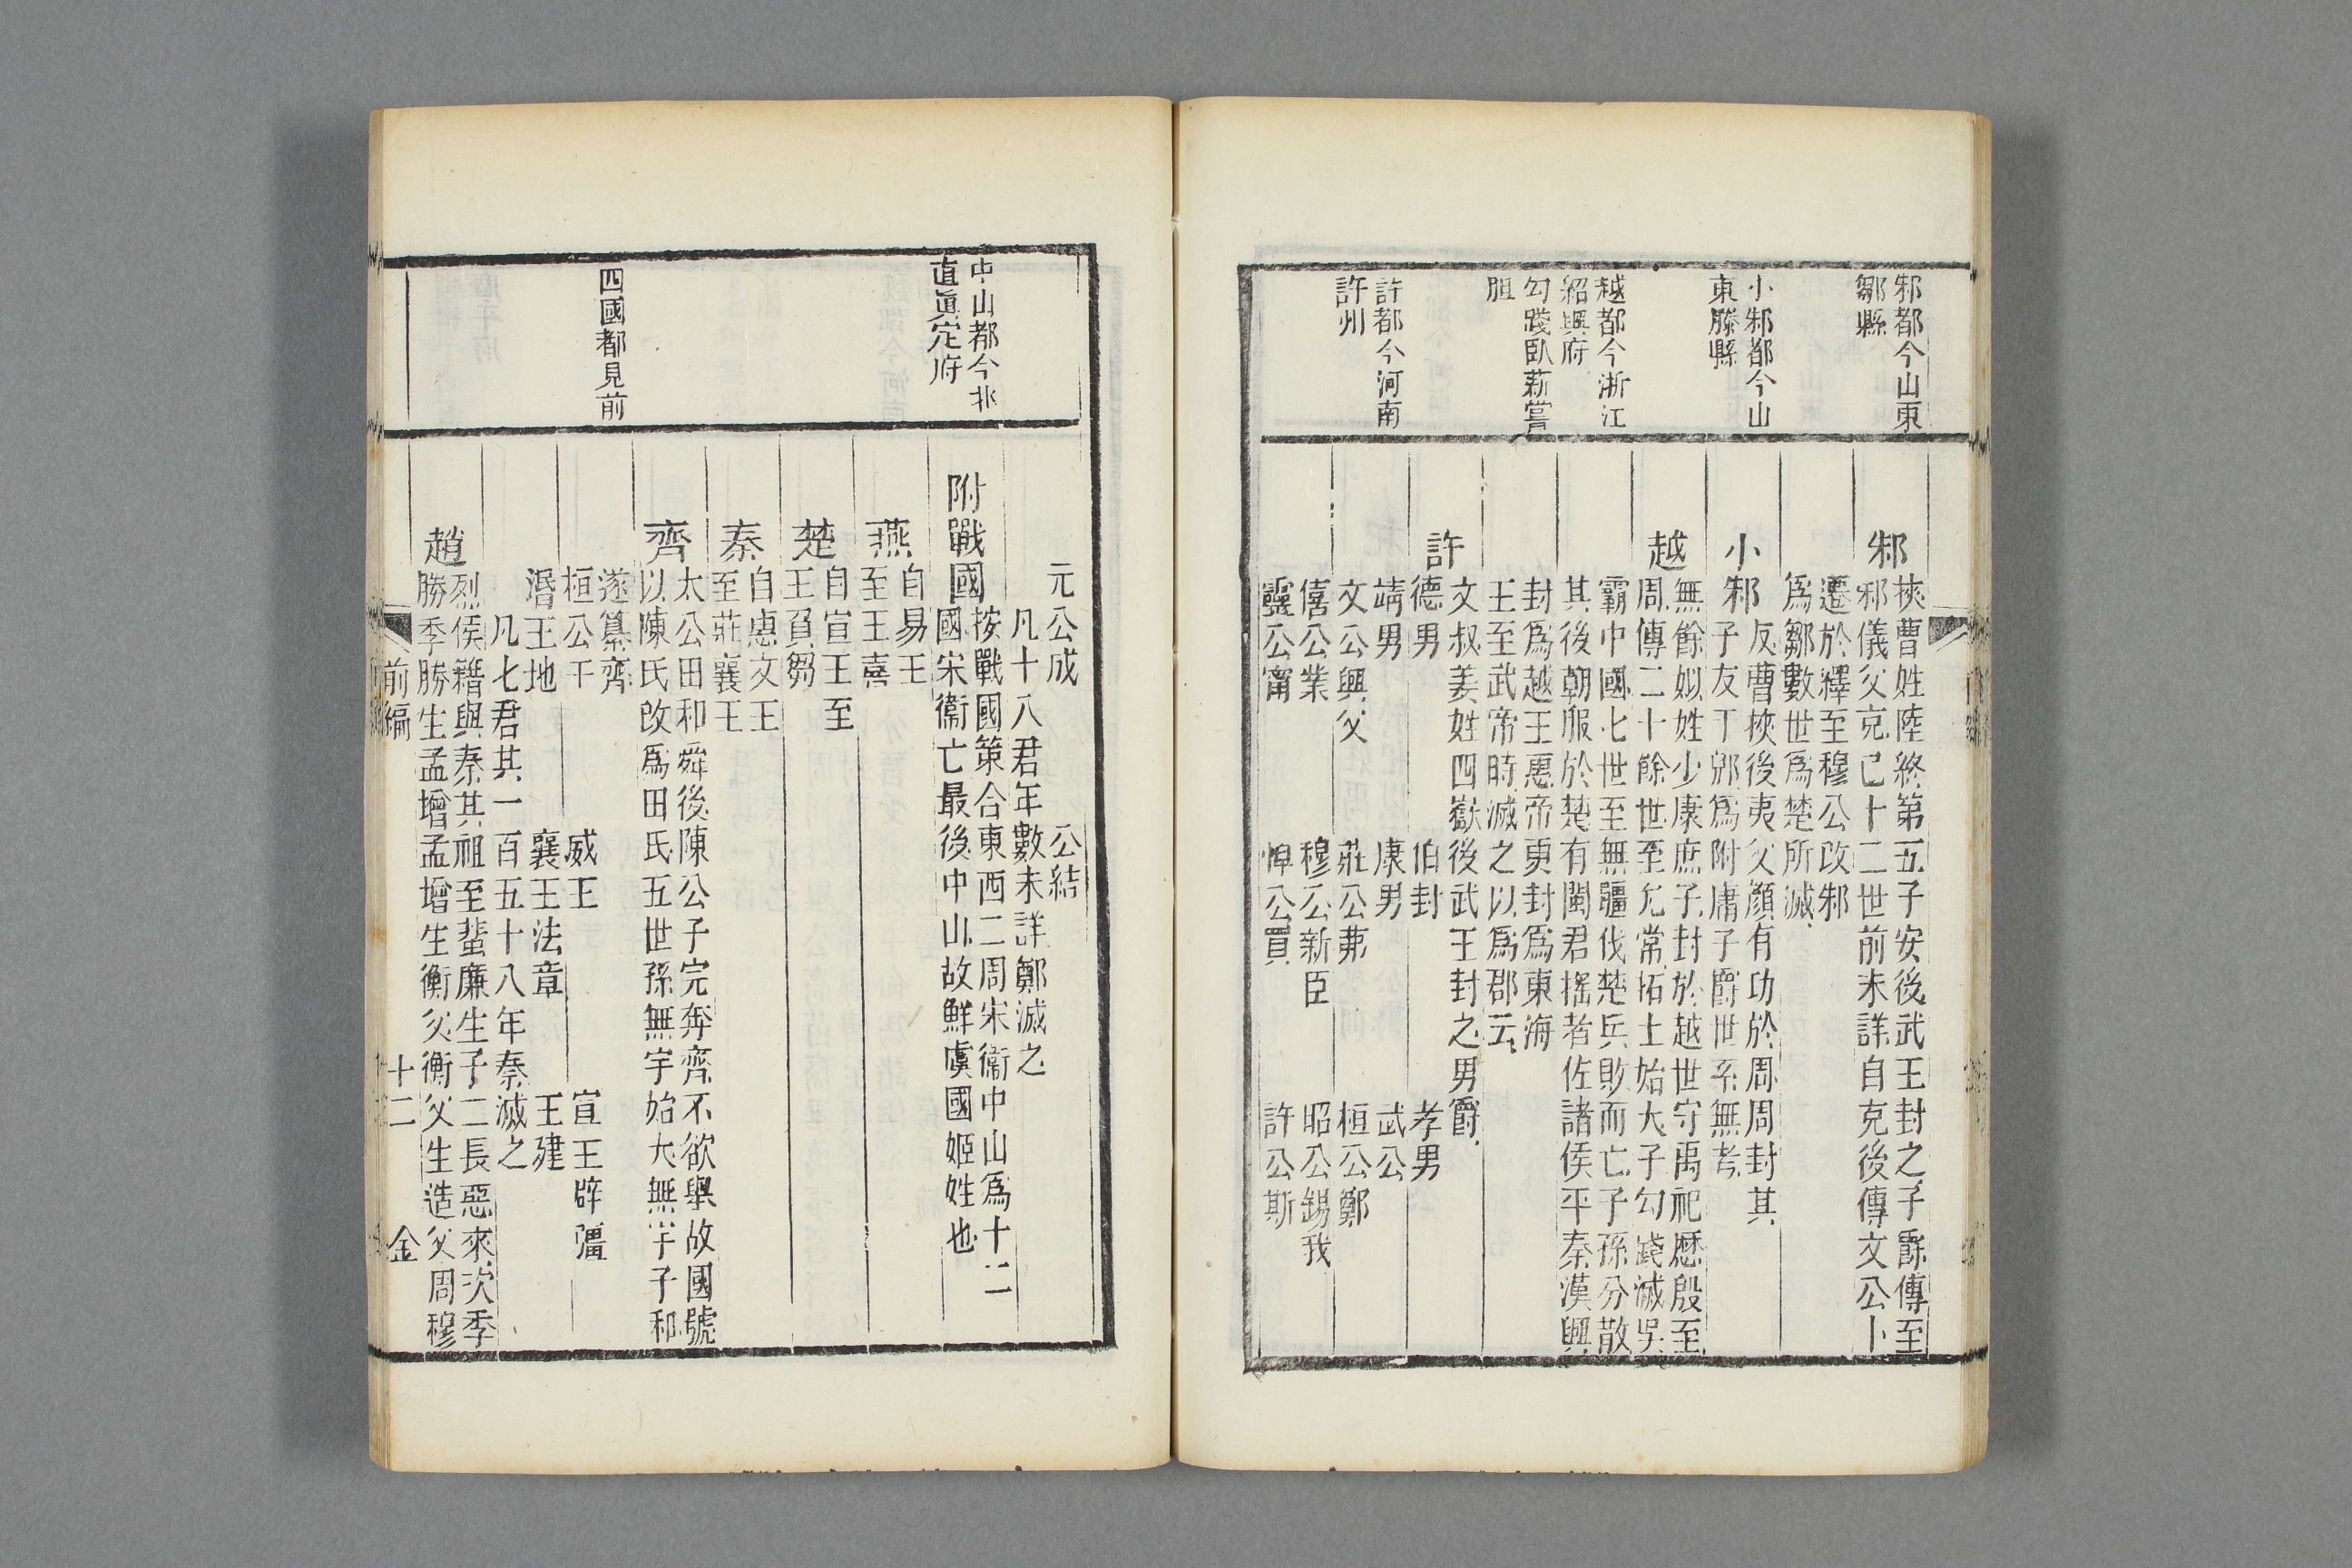 邾都今山東
鄒縣
小邾都今山
東滕縣
越都今浙江
紹興府
勾踐臥薪嘗
胆
許都今河南
許州
邾
挾曹姓陸終第五子安後武王封之子爵傳至
邾儀父克已十二世前未詳自克後傳文公卜
遷於繹至穆公改邾
爲鄒數世爲楚所滅
小邾
友曹挾後夷父顏有功於周周封其
子友于郳爲附庸子爵世系無考
越
無餘姒姓少康庶子封於越世守禹祀歷殷至
周傳二十餘世至允常拓土始大子勾踐滅吳
霸中國七世至無疆伐楚兵敗而亡子孫分散
其後朝服於楚有閩君搖者佐諸侯平秦漢興
封爲越王惠帝更封爲東海
王至武帝時滅之以爲郡云
許
文叔姜姓四嶽後武王封之男爵
德男 伯封 孝男
靖男 康男 武公
文公興父 莊公弗 桓公鄭
僖公業 穆公新臣 昭公錫我
靈公甯 悼公買 許公斯
中山都今北
直眞定府
四國都見前
元公成 公結
凡十八君年數未詳鄭滅之
附戰國
按戰國策合東西二周宋衞中山爲十二
國宋衞亡最後中山故鮮虞國姬姓也
燕
自易王
至王喜
楚
自宣王至
王負芻
秦
自惠文王
至莊襄王
齊
太公田和舜後陳公子完奔齊不欲舉故國號
以陳氏改爲田氏五世孫無宇始大無宇子和
遂篡齊
桓公干 威王 宣王辟彊
湣王地 襄王法章 王建
凡七君其一百五十八年秦滅之
趙
烈侯籍與秦其祖至蜚廉生子二長惡來次季
勝季勝生孟增孟增生衡父衡父生造父周穆
前編 十二 金